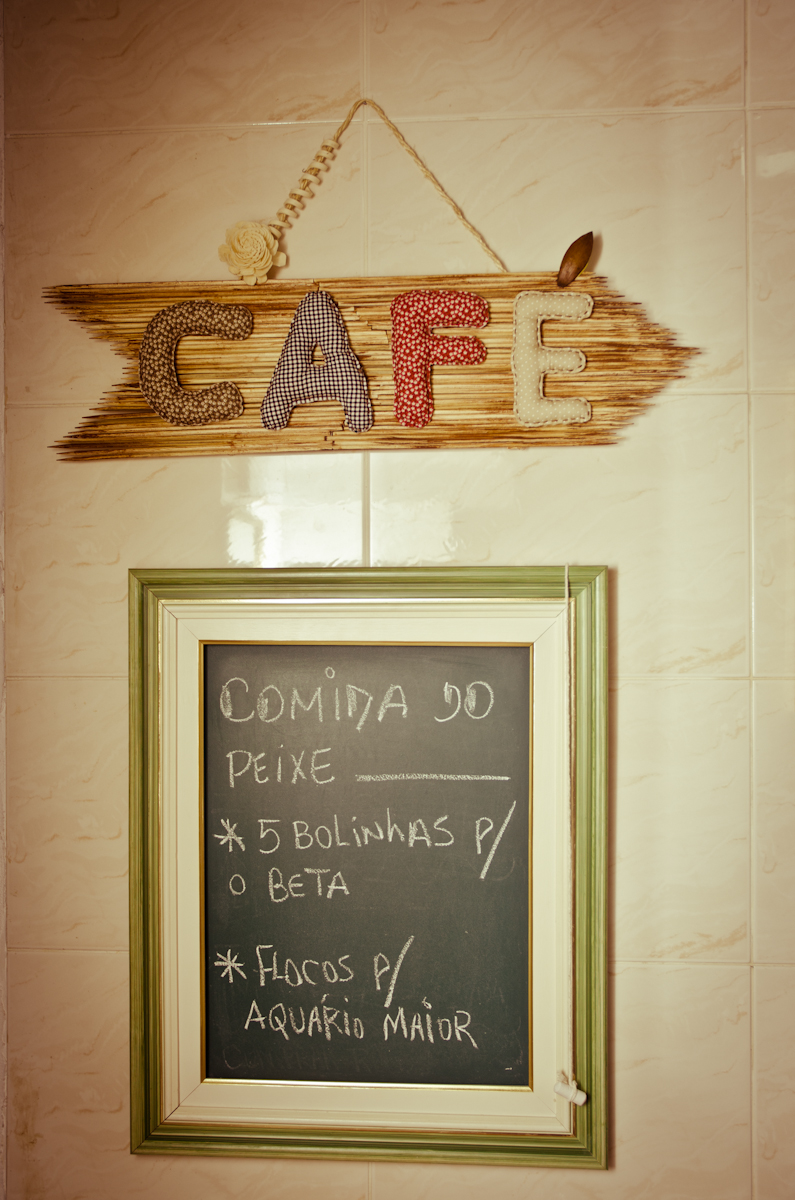 CAFÉ
COMIDA DO
PEIXE
* 5 BOLINHAS P/
O BETA
* FLOCOS P/
AQUÁRIO MAIOR